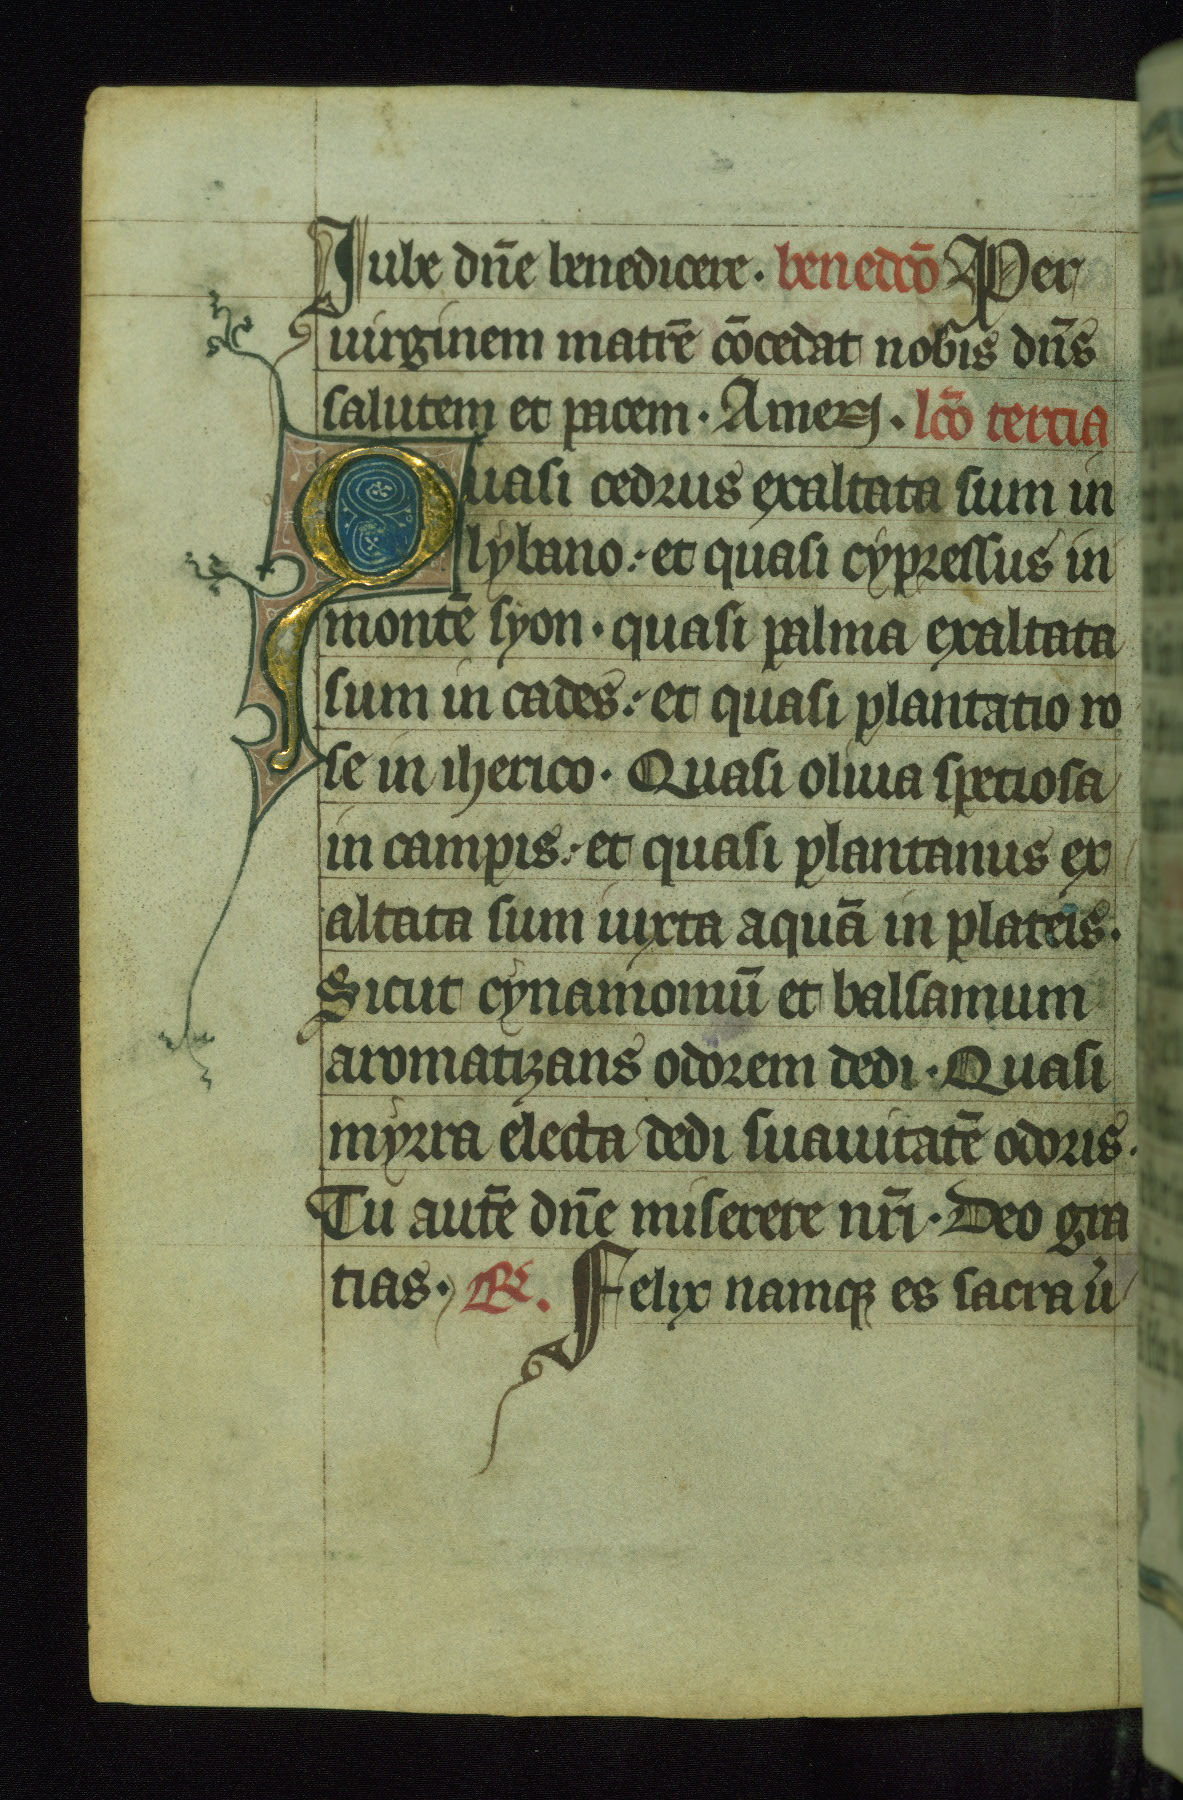 Iube dn̄e benedicere. benedcō Per
uirginem matrē cōcedat nobis dn̄s
salutem et pacem. Amen. lcō tercia
Quasi cedrus exaltata sum in
lybano: et quasi cypressus in
montē syon. quasi palma exaltata
sum in cades: et quasi plantatio ro
se in iherico. Quasi oliua speciosa
in campis: et quasi plantanus ex
altata sum iuxta aquā in plateis.
Sicut cynamomū et balsamum
aromatizans odorem dedi. Quasi
myrra electa dedi suauitatē odoris.
Tu autē dn̄e miserere nr̄i. Deo gra
tias. ℞. Felix namq; es sacra u̓